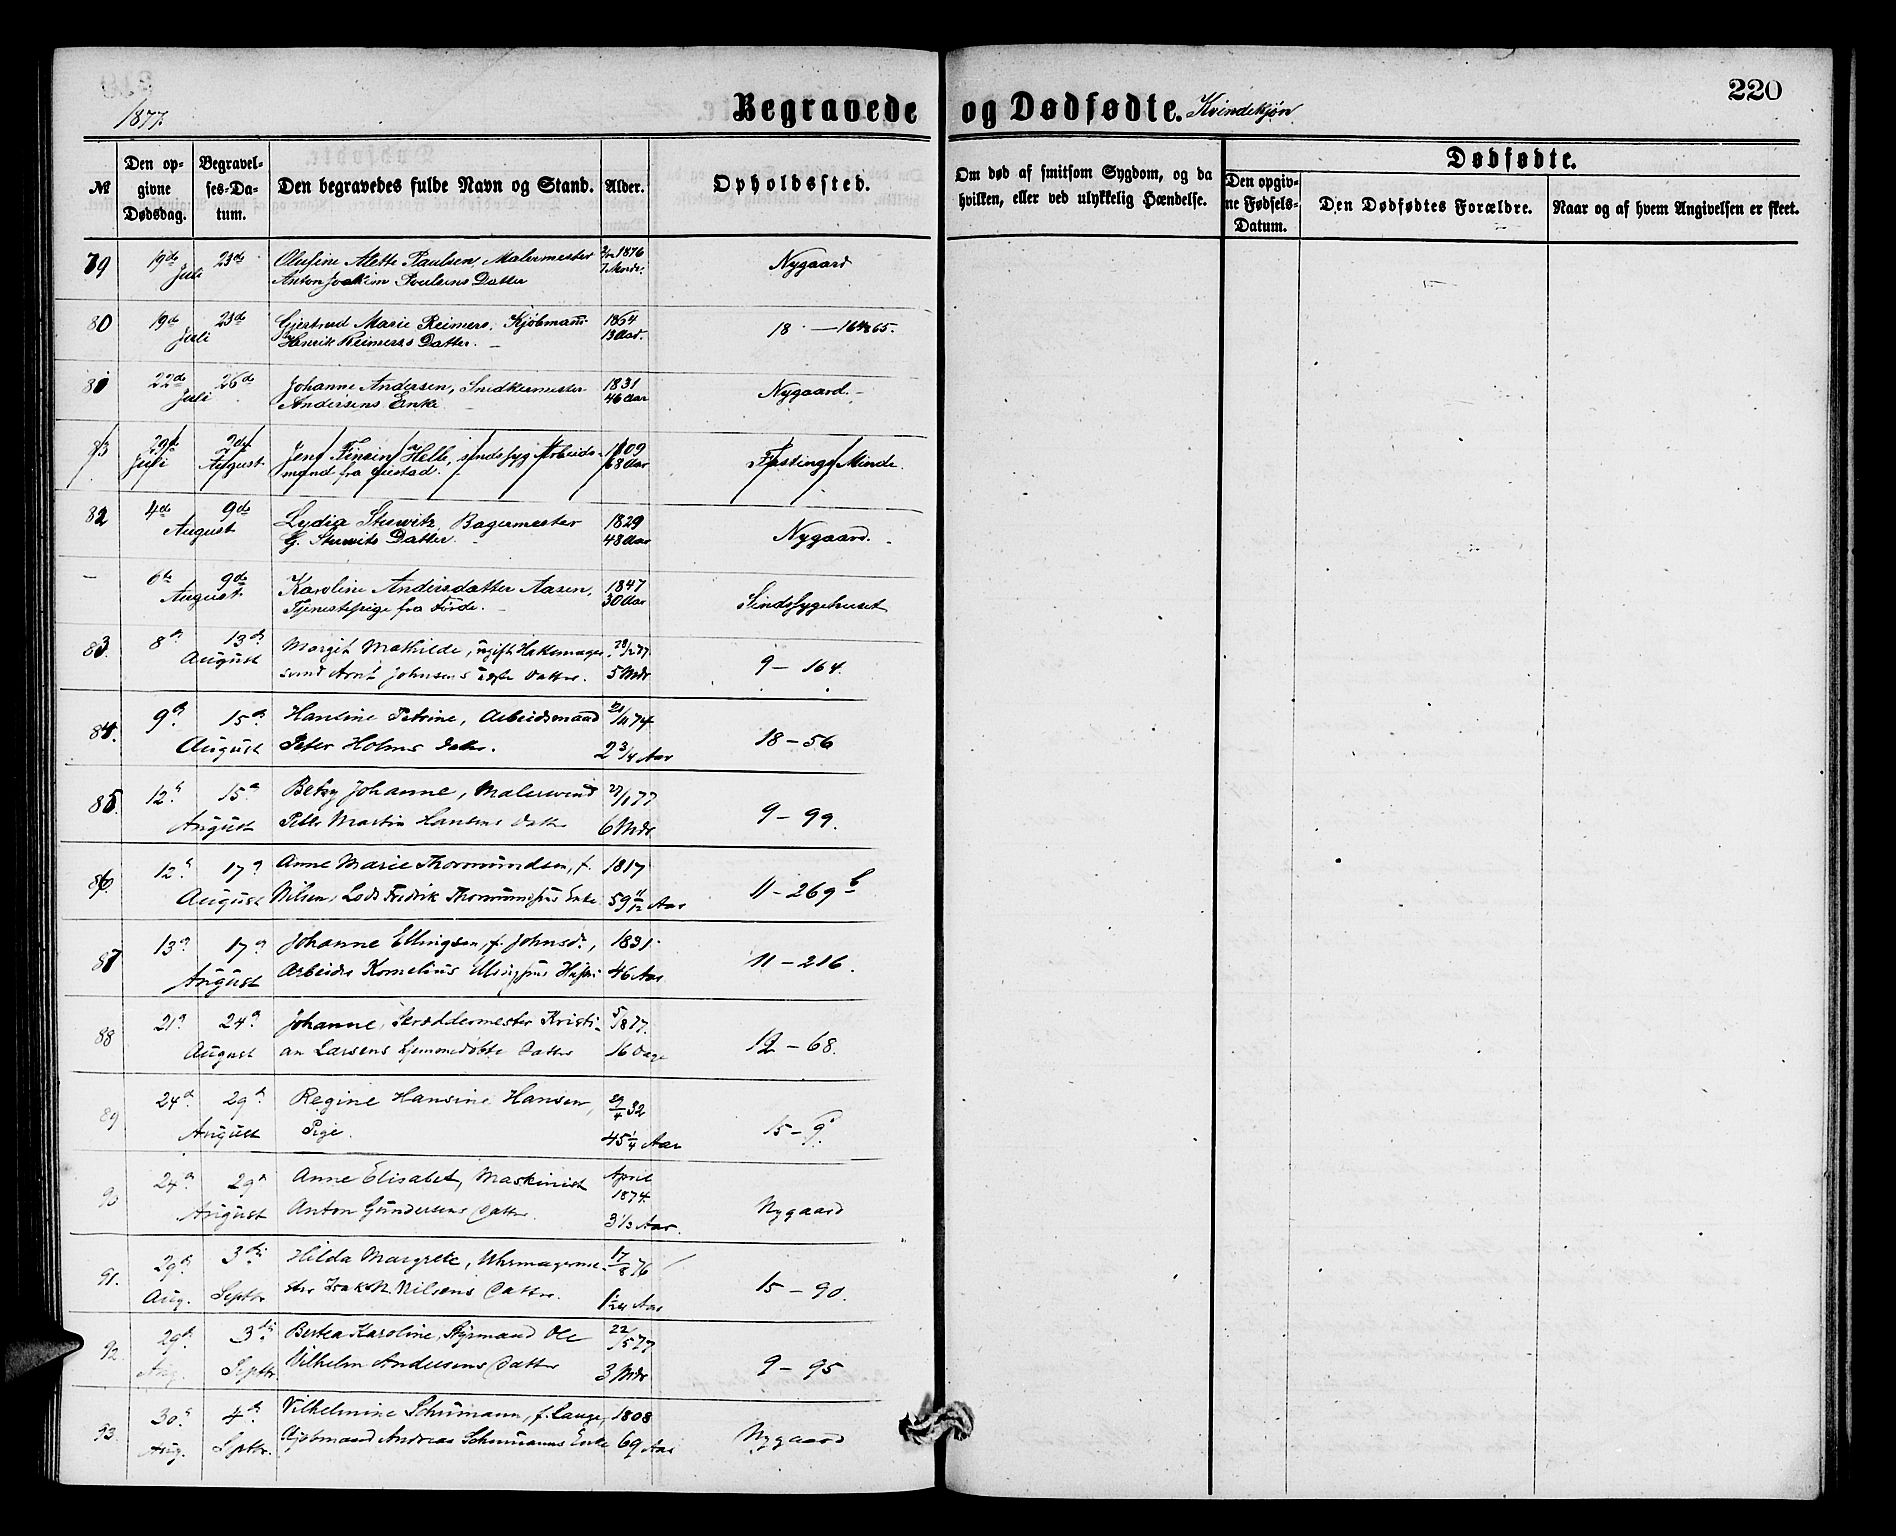 220
1877.
Begravede og Dødfødte. Kvindekjøn
№
Den opgivne Dødsdag.
Begravelses-Datum.
Den begravedes fulde Navn og Stand.
Alder.
Opholdssted.
Om død af smitsom Sygdom, og da hvilken, eller ved ulykkelig Hændelse.
Dødfødte.
Den opgivne Fødsels-Datum.
Den Dødfødtes Forældre.
Naar og af hvem Angivelsen er skeet.
79 19de 23de Olufine Alette Paulsen, Malermester 1876 Nygaard
Juli Anton Joakim Poulsens Datter 7 Mndr.
80 19de 23de Gjertrud Marie Reimers, Kjøbmand 1864 18
Juli Henrik Reimers Datter. 13 Aar.
81 22de 26de Johanne Andersen, Snedkermester 1831 Nygaard.
Juli Andersens Enke 46 Aar
83 29de 2den Jens Helle, sindssyg Arbeids- 1809 Fastings Minde.
Juli August mand fra 68 Aar
82 4de 9de Lydia Stuwitz, Bagermester 1829 Nygaard.
August G. Stuwitz Datter. 48 Aar
— 6te 9de Karoline Andersdatter Aasen, 1847 Sindssygehuset
August Tjenestepige fra Førde. 30 Aar
83. 8de 13de Margit Mathilde, ugift Hattemager 28/2 77 9 – 164.
August svend Arnt Johnsens uægte Datter. 5 Mdr
84. 9de 15de Hansine Petrine, Arbeidsmand 21/11 74 18 – 56
August Peter Holms Datter. 2 3/4 Aar
85. 12te 15de Betzy Johanne, Malersvend 27/1 77 9 – 99.
August Peter Martin Hansens Datter 6 Mdr.
86. 12te 17de Anne Marie Thormundsen, f. 1817 11 – 269 b
August Nilsen, Lods Fredrik Thormundsens Enke 59 11/12 Aar
87 13de 17de Johanne Ellingsen, f. Johnsd., 1831 11 – 216.
August Arbeider Kornelius Ellingsens Hustru 46 Aar
88 21de 24de Johanne, Skræddermester Kristi- 5/8 77. 12 – 68.
August an Larsens hjemmedøbte Datter 16 Dage
89 24de 29de Regine Hansine Hansen, 29/4 32 15 – 9
August Pige. 45 1/4 Aar
90 24de 29de Anne Elisabet, Maskinist April 1874. Nygaard
August Anton Gundersens Datter. 3 1/3 Aar.
91. 29de 3die Hilda Margrete, Uhrmagerme- 17/8 76 15 – 90.
Aug. Septbr. ster Isak M. Nilsens Datter. 1 1/24 Aar
92 29de 3die Bertea Karoline, Styrmand Ole 22/5 77 9 – 95
Aug. Septbr. Vilhelm Andersens Datter 3 Mdr
93. 30te 4de Vilhelmine Schumann, f. Lange, 1808 Nygaard
Aug. Septbr. Kjøbmand Andreas Schumanns Enke 69 Aar